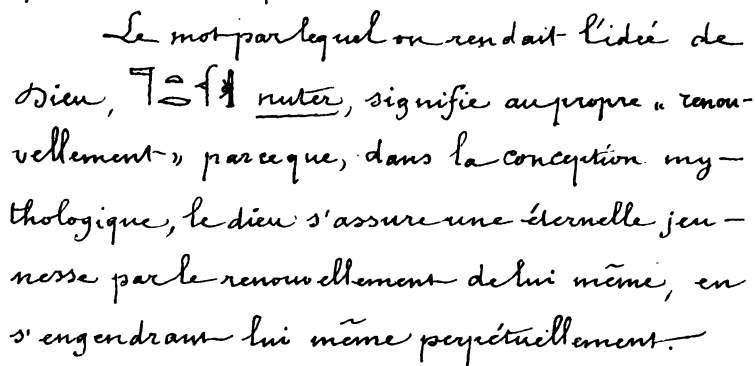 Le mot par lequel on rendait l'idée de
Dieu, 𓊹𓏏𓂋𓇋𓀭 nuter, signifie au propre « renou-
vellement » parce que, dans la conception my-
thologique, le dieu s'assure une éternelle jeu-
nesse par le renouvellement de lui même, en
s'engendrant lui même perpétuellement.